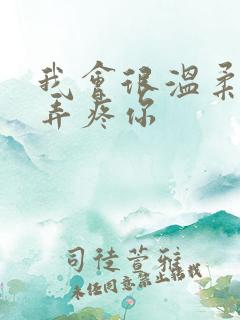 我會很溫柔
弄疼你
司徒萱雅
未经同意禁止转载